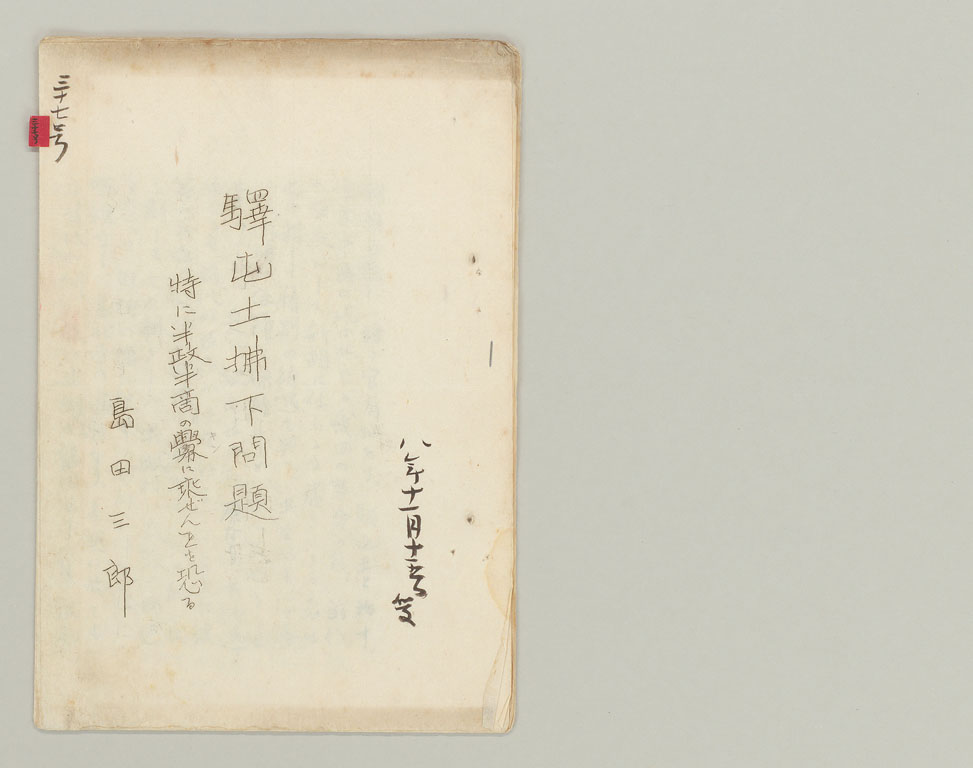 八年十一月十五日受
驛屯土拂下問題
特に半政半商の釁に乘ぜんことを恐る
島田三郎
三十七号